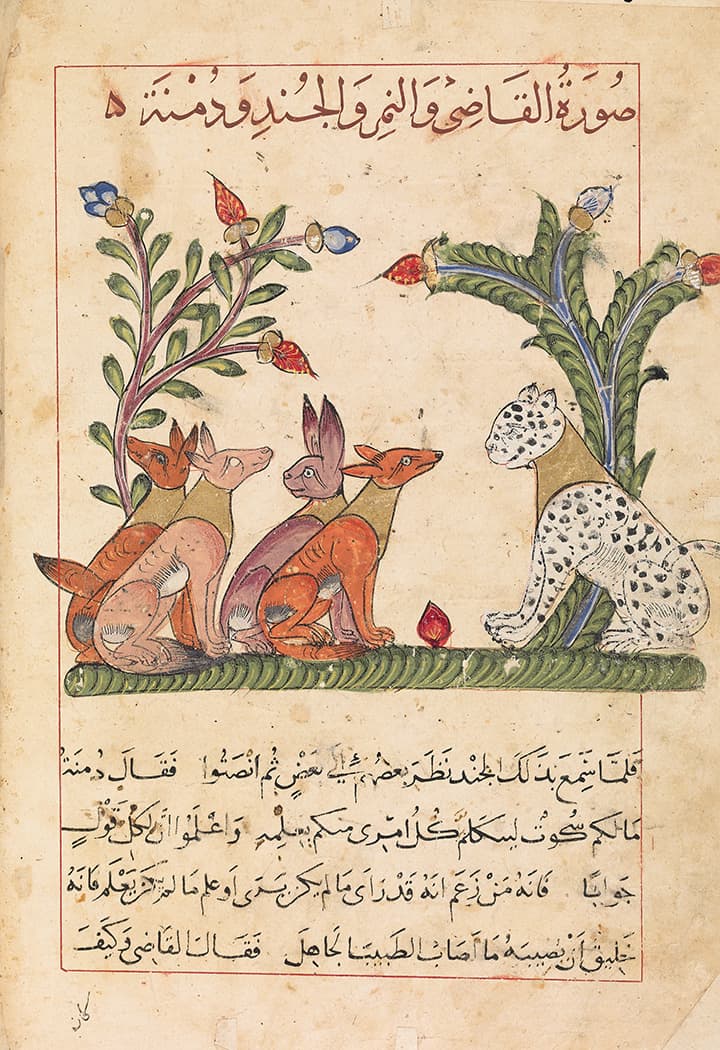 صُورَةُ القَاضِى وَالنمِرِ وَالجُندِ وَدُمْنَةَ ۵
فَلمَّا سَمِعَ بذَلكَ الجند نَظَرَ بعضهُم إلى بَعضٍ ثم انصَتُوا فَقَالَ دُمنَةُ
مَا لكم سُكوت ليتكلم كُلُّ امرِى منكم بعِلمِهِ وَاعْلَموا انَّ لكل قَولٍ
جوابًا فَانهُ مَنْ زَعَمَ انهُ قد رَاى مَا لم يكن يَرَى او علم مَا لم يكن يَعْلَم فانهُ
خَليق أَنْ يصيبَهُ مَا أصَابَ الطبيبَ الجَاهِلَ فقَالَ القَاضِى وَكَيْفَ
كان